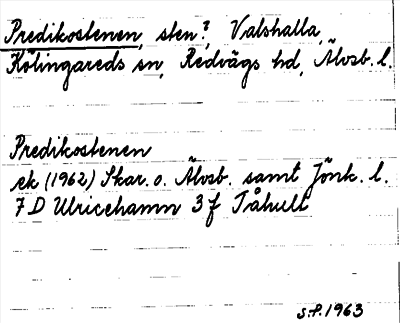 Predikostenen, sten?, Valshalla,
Kölingareds sn, Redvägs hd, Älvsb. l.
Predikostenen
ek (1962) Skar. o. Älvsb. samt Jönk. l.
7 D Ulricehamn 3 f Tåhult
S.P. 1963